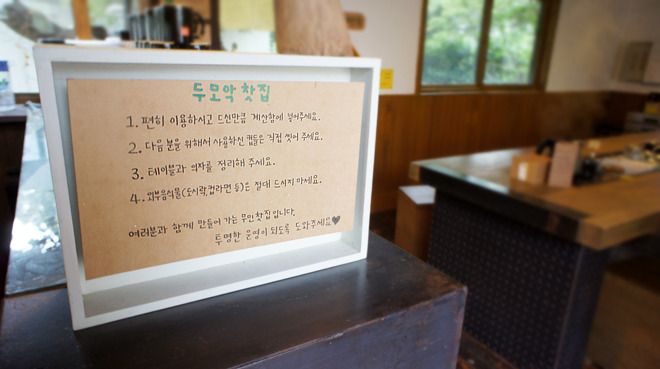 두모악 찻집
1. 편히 이용하시고 드신만큼 계산함에 넣어주세요.
2. 다음 분을 위해서 사용하신 컵들은 직접 씻어 주세요.
3. 테이블과 의자를 정리해 주세요.
4. 외부음식물(도시락,컵라면 등)은 절대 드시지 마세요.
여러분과 함께 만들어 가는 무인찻집입니다.
투명한 운영이 되도록 도와주세요♥